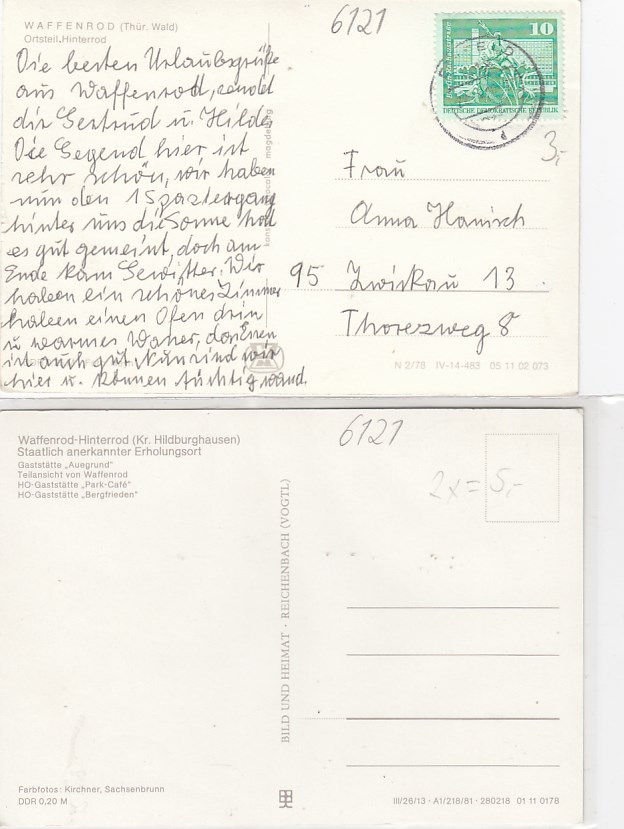 WAFFENROD (Thür. Wald)
Ortsteil Hinterrod
6121
10
DEUTSCHE DEMOKRATISCHE REPUBLIK
3,-
Die besten Urlaubsgrüße
aus Waffenrod, sendet
dir Gertrud u. Hilde
Die Gegend hier ist
sehr schön, wir haben
nun den 1 Spaziergang
hinter uns die Sonne hat
es gut gemeint, doch am
Ende kam Gewitter. Wir
haben ein schönes Zimmer
haben einen Ofen drin
u warmes Waßer, das Essen
ist auch gut. Nun sind wir
hier u. können tüchtig wand.
magdeburg
Frau
Anna Hanisch
95 Zwickau 13
Thorezweg 8
N 2/78 IV-14-483 05 11 02 073
Waffenrod-Hinterrod (Kr. Hildburghausen)
Staatlich anerkannter Erholungsort
Gaststätte „Auegrund“
Teilansicht von Waffenrod
HO-Gaststätte „Park-Café“
HO-Gaststätte „Bergfrieden“
6121
2x = 5,-
BILD UND HEIMAT · REICHENBACH (VOGTL)
Farbfotos: Kirchner, Sachsenbrunn
DDR 0,20 M
III/26/13 · A1/218/81 · 280218 01 11 0178